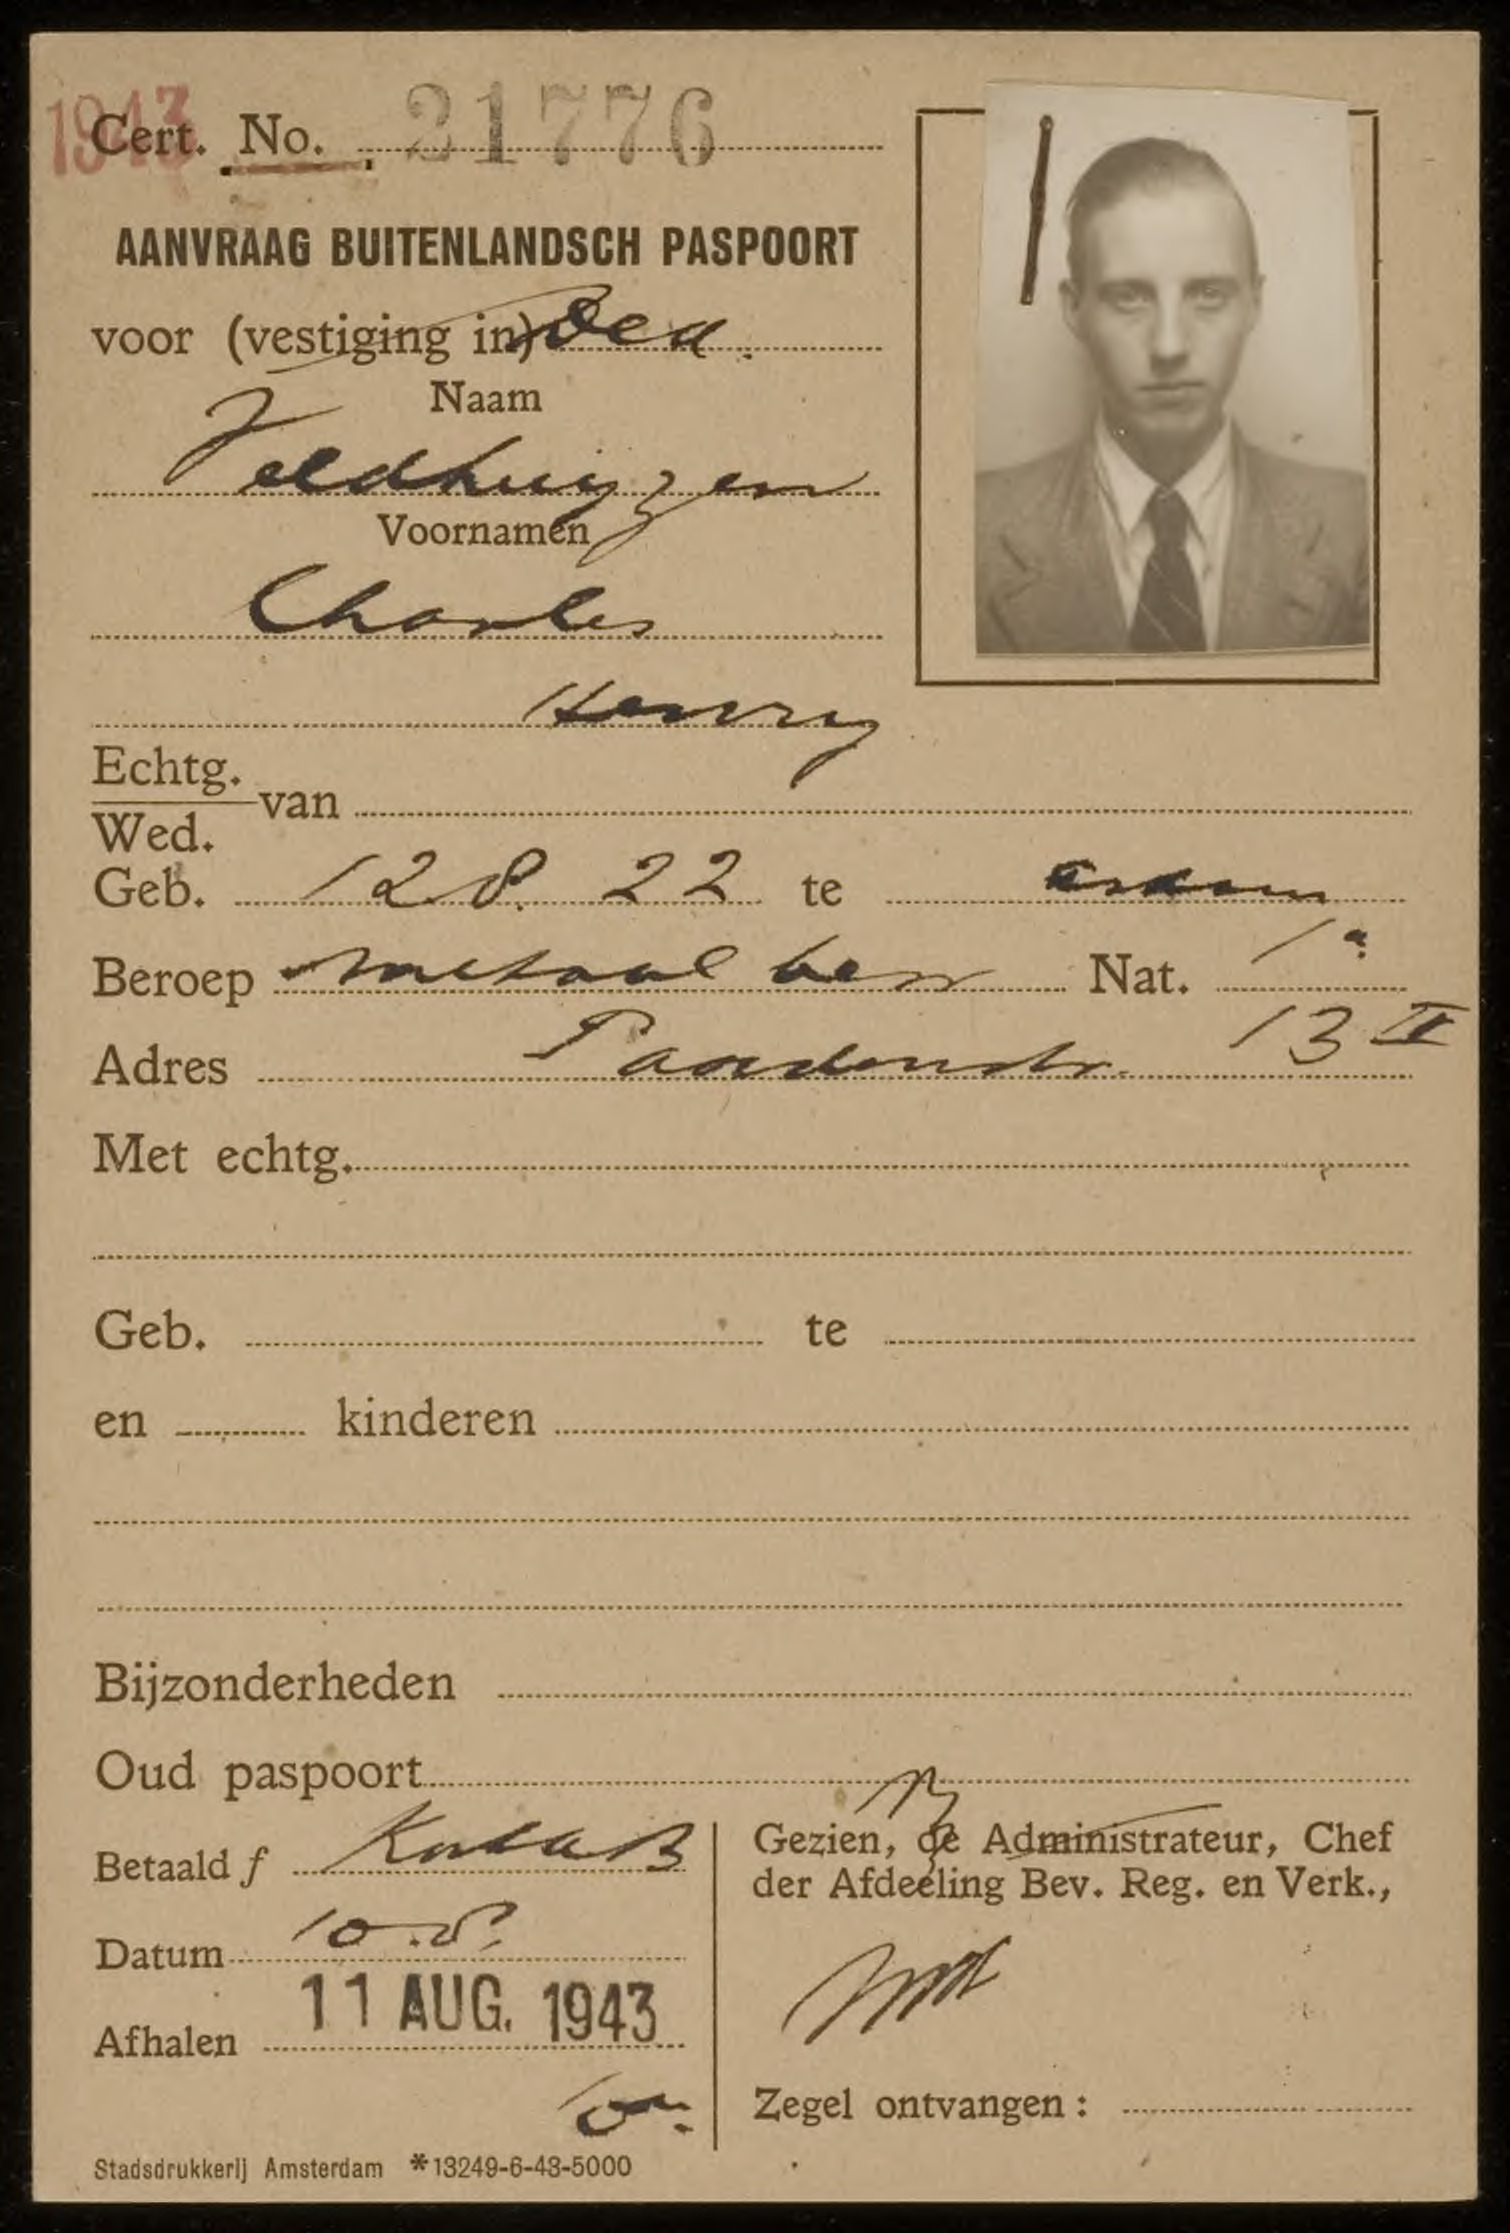 1943
Cert. No. 21776
AANVRAAG BUITENLANDSCH PASPOORT
voor (vestiging in)
Naam
Veldhuijzen
Voornamen
Charles
Henry
Echtg.
van
Wed.
Geb. 12 8. 22 te
Beroep metaal bew Nat. 1a
Adres 13 II
Met echtg.
Geb. te
en kinderen
Bijzonderheden
Oud paspoort
Betaald f
Datum 10.8.
Afhalen 11 AUG. 1943
Gezien, de Administrateur, Chef
der Afdeeling Bev. Reg. en Verk.,
Zegel ontvangen:
Stadsdrukkerij Amsterdam *13249-6-43-5000